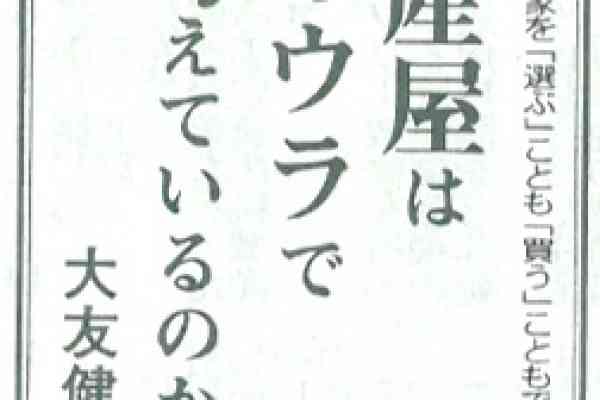 家を「選ぶ」ことも「買う」ことも
産屋は
ウラで
えているのか
大友健